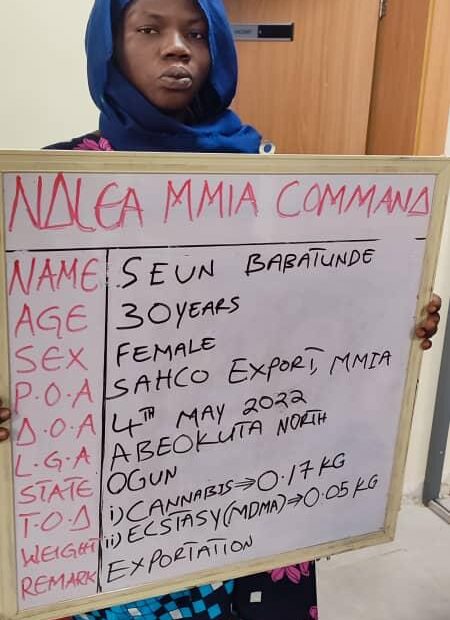 NDLEA MMIA COMMAND
NAME SEUN BABATUNDE
AGE 30YEARS
SEX FEMALE
P.O.A SAHCO EXPORT, MMIA
D.O.A 4TH MAY 2022
L.G.A ABEOKUTA NORTH
STATE OGUN
T.O.D i) CANNABIS⇒0.17KG
WEIGHT ii) ECSTASY(MDMA)⇒0.05KG
REMARK EXPORTATION